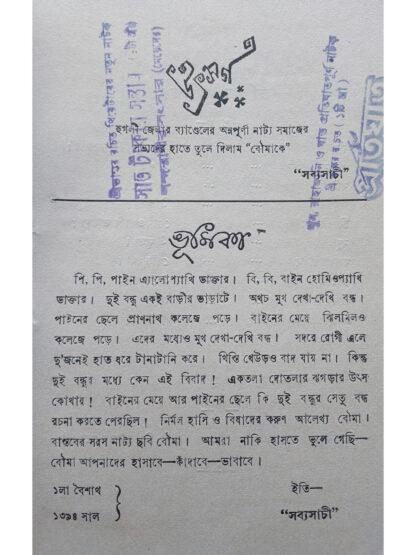 উৎসর্গ
হুগলী জেলার ব্যাণ্ডেলের অন্নপূর্ণা নাট্য সমাজের
হাতে তুলে দিলাম “বৌমাকে”
“সব্যসাচী”
ভূমিকা
পি, পি, পাইন এ্যালোপ্যাথি ডাক্তার। বি, বি, বাইন হোমিওপ্যাথী
ডাক্তার। দুই বন্ধু একই বাড়ীর ভাড়াটে। অথচ মুখ দেখা-দেখি বন্ধ।
পাইনের ছেলে প্রাণনাথ কলেজে পড়ে। বাইনের মেয়ে ঝিলমিলও
কলেজে পড়ে। এদের মধ্যেও মুখ দেখা-দেখি বন্ধ। সদরে রোগী এলে
দু’জনেই হাত ধরে টানাটানি করে। খিস্তি খেউড়ও বাদ যায় না। কিন্তু
দুই বন্ধুর মধ্যে কেন এই বিবাদ! একতলা দোতলার ঝগড়ার উৎস
কোথায়! বাইনের মেয়ে আর পাইনের ছেলে কি দুই বন্ধুর সেতু বন্ধ
রচনা করতে পেরছিল! নির্মল হাসি ও বিষাদের করুণ আলেখ্য বৌমা।
বাস্তবের সরস নাট্য ছবি বৌমা। আমরা নাকি হাসতে ভুলে গেছি—
বৌমা আপনাদের হাসাবে—কাঁদাবে—ভাবাবে।
১লা বৈশাখ
১৩৯৪ সাল
ইতি—
“সব্যসাচী”